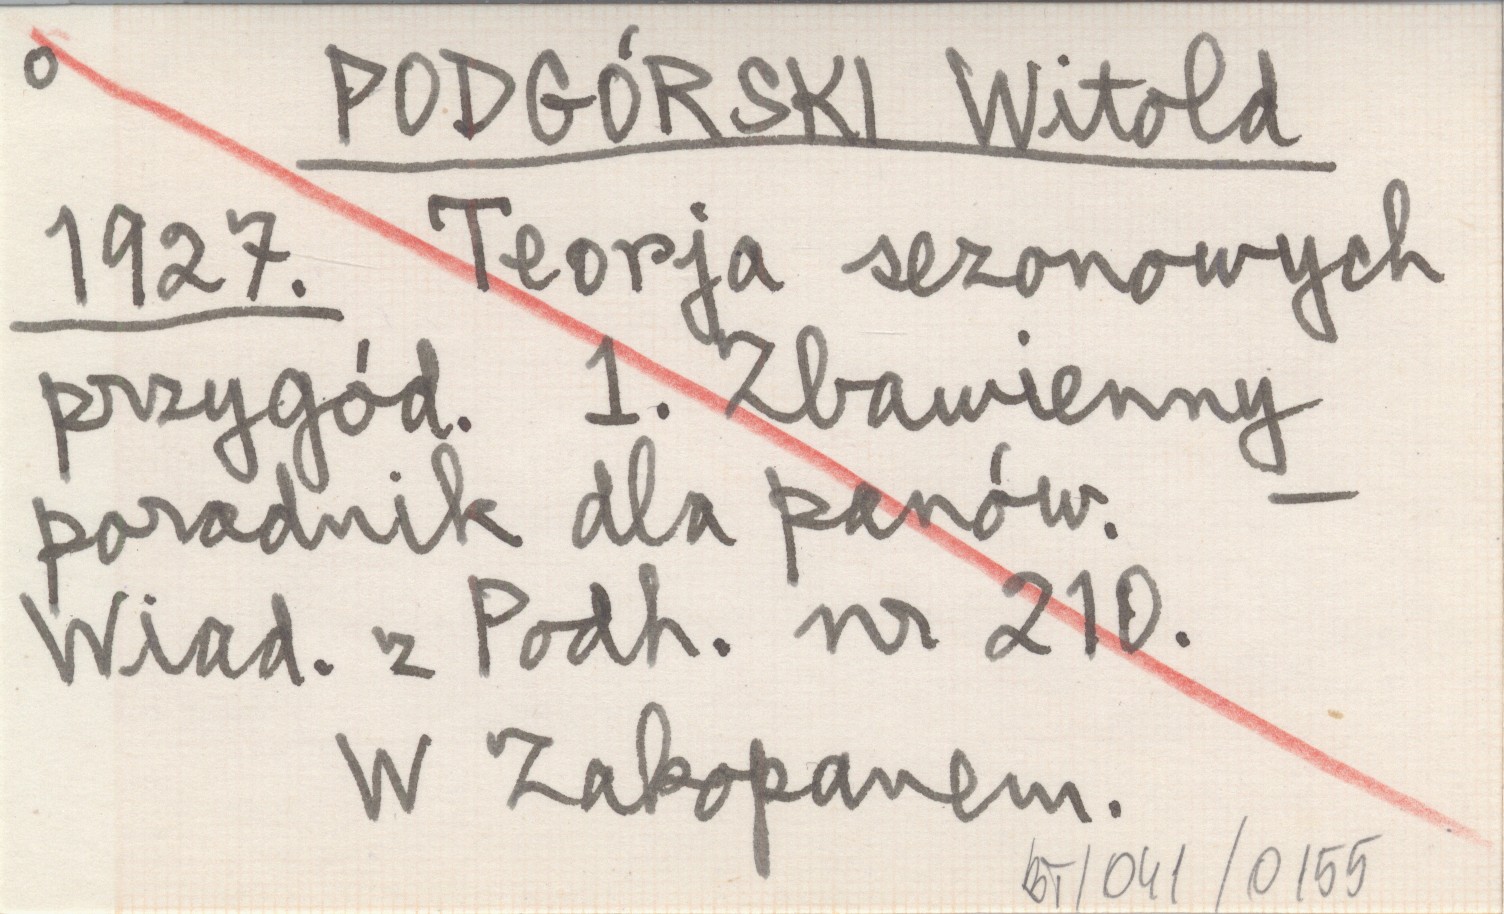 o PODGÓRSKI Witold
1927. Teorja sezonowych
przygód. 1. Zbawienny
poradnik dla panów. —
Wiad. z Podh. nr 210.
W Zakopanem.
BT/041/0155